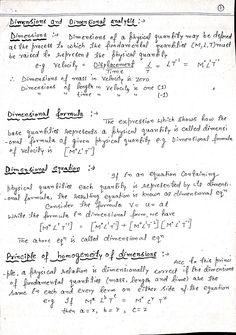 1
Dimensions and Dimensional analysis :→
Dimensions :→ Dimensions of a physical quantity may be defined
as the process to which the fundamental quantities (M,L,T) must
be raised to represent the physical quantity
e.g velocity = Displacement / Time = L/T = LT⁻¹ = M⁰LT⁻¹
∴ Dimensions of mass in velocity is zero
Dimensions of length in velocity is one (1)
" " time " " " (-1)
Dimensional formula :→
The expression which shows how the
base quantities represents a physical quantity is called dimensi
-onal formula of given physical quantity e.g Dimensional formula
of velocity is [M⁰LT⁻¹]
Dimensional equation :→
If in an Equation containing
physical quantities each quantity is represented by its dimensi-
onal formula, the resulting equation is known as dimensional eqⁿ
Consider the formula V = u + at
Write the formula in dimensional form, we have
[M⁰LT⁻¹] = [M⁰LT⁻¹] + [M⁰LT⁻²][M⁰L⁰T]
The above eqⁿ is called dimensional eqⁿ
Principle of homogeneity of dimensions :→
Acc to this princi-
ple, a physical relation is dimensionally correct if the dimensions
of fundamental quantities (mass, length and time) are the
same in each and every term on either side of the equation
e.g If MᵃLᵇTᶜ = MˣLʸTᶻ
then a=x, b=y, c=z